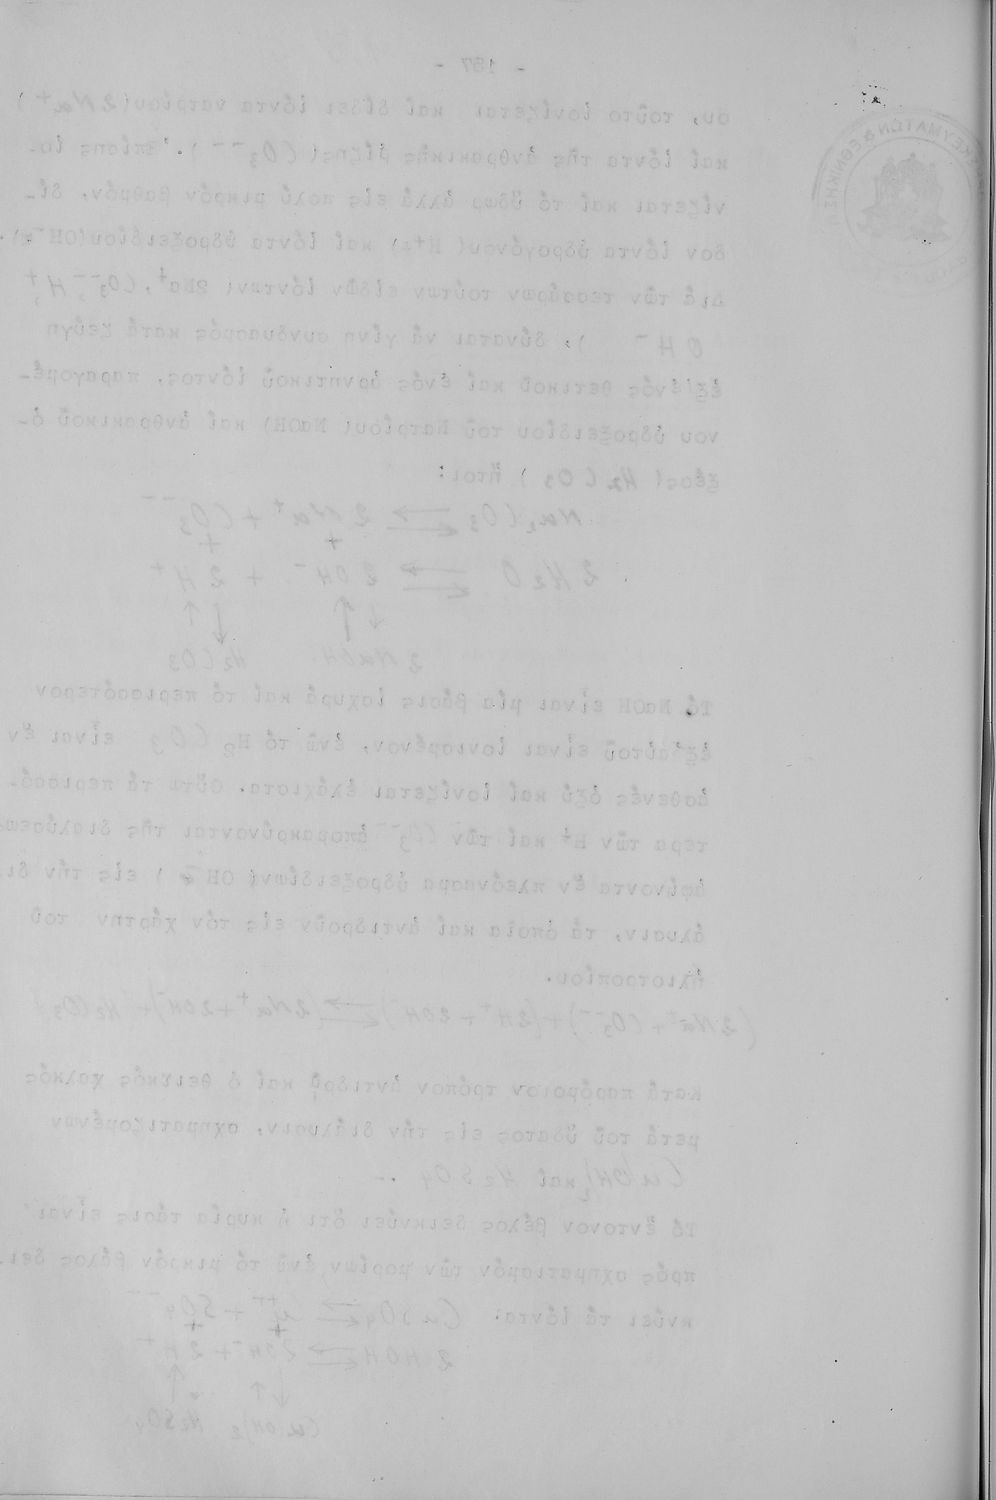 - 187 -
ου, τοῦτο ἰονίζεται καί δίδει ἰόντα νατρίου(2Na⁺)
καί ἰόντα τῆς ἀνθρακικῆς ρίζης( CO₃⁻⁻ ). Ἐπίσης ἰο-
νίζεται καί τό ὕδωρ ἀλλά εἰς πολύ μικρόν βαθμόν, δί-
δον ἰόντα ὑδρογόνου( H⁺) καί ἰόντα ὑδροξειδίου(OH⁻).
Διά τῶν τεσσάρων τούτων εἰδῶν ἰόντων( 2Na⁺, CO₃⁻⁻, H⁺,
OH⁻ ), δύναται νά γίνη συνδυασμός κατά ζεύγη
ἐξ'ἑνός θετικοῦ καί ἑνός ἀρνητικοῦ ἰόντος, παραγομέ-
νου ὑδροξειδίου τοῦ Νατρίου( NaOH) καί ἀνθρακικοῦ ὀ-
ξέος( H₂CO₃ ) ἤτοι:
Na₂CO₃ ⇄ 2Na⁺ + CO₃⁻⁻
+ +
2H₂O ⇄ 2OH⁻ + 2H⁺
↑↓ ↓↑
2NaOH H₂CO₃
Τό NaOH εἶναι μία βάσις ἰσχυρά καί τό περισσότερον
ἐξ'αὐτοῦ εἶναι ἰονισμένον, ἐνῶ τό H₂CO₃ εἶναι ἕν
ἀσθενές ὀξύ καί ἰονίζεται ἐλάχιστα. Οὕτω τά περισσό-
τερα τῶν H⁺ καί τῶν CO₃⁻⁻ ἀπομακρύνονται τῆς διαλύσεως
ἀφίνοντα ἕν πλεόνασμα ὑδροξειδίων( OH⁻ ) εἰς τήν δι
άλυσιν, τά ὁποῖα καί ἀντιδροῦν εἰς τόν χάρτην τοῦ
ἡλιοτροπίου.
(2Na⁺ + CO₃⁻⁻) + (2H⁺ + 2OH⁻) ⇄ (2Na⁺ + 2OH⁻) + H₂CO₃
Κατά παρόμοιον τρόπον ἀντιδρᾶ καί ὁ θειϊκός χαλκός
μετά τοῦ ὕδατος εἰς τήν διάλυσιν, σχηματιζομένων
Cu(OH)₂ καί H₂SO₄ ..
Τό ἔντονον βέλος δεικνύει ὅτι ἡ κυρία τάσις εἶναι
πρός σχηματισμόν τῶν μορίων, ἐνῶ τό μικρόν βέλος δει-
κνύει τά ἰόντα. CuSO₄ ⇄ Cu⁺⁺ + SO₄⁻⁻
+ +
2HOH ⇄ 2OH⁻ + 2H⁺
↓↑ ↓↑
Cu(OH)₂ H₂SO₄